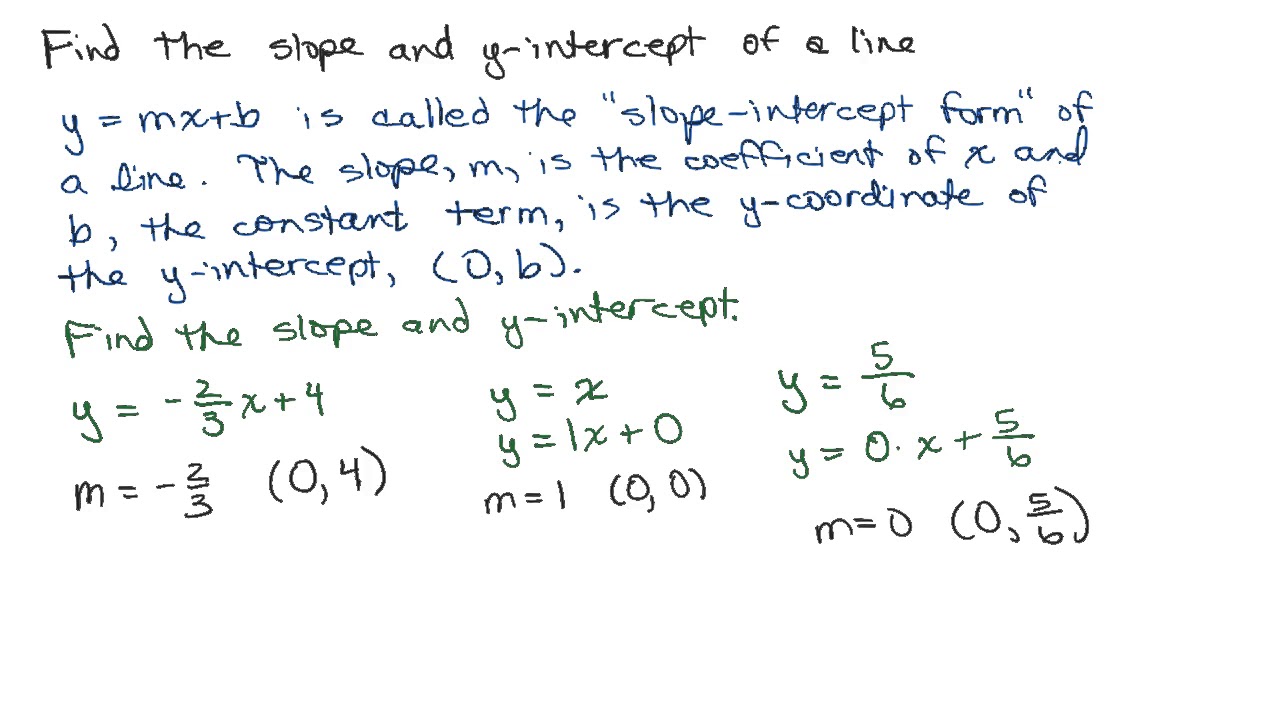 Find the slope and y-intercept of a line
y = mx+b is called the "slope-intercept form" of
a line. The slope, m, is the coefficient of x and
b, the constant term, is the y-coordinate of
the y-intercept, (0,b).
Find the slope and y-intercept.
y = -2/3 x + 4
m = -2/3 (0,4)
y = x
y = 1x + 0
m = 1 (0,0)
y = 5/6
y = 0·x + 5/6
m = 0 (0, 5/6)